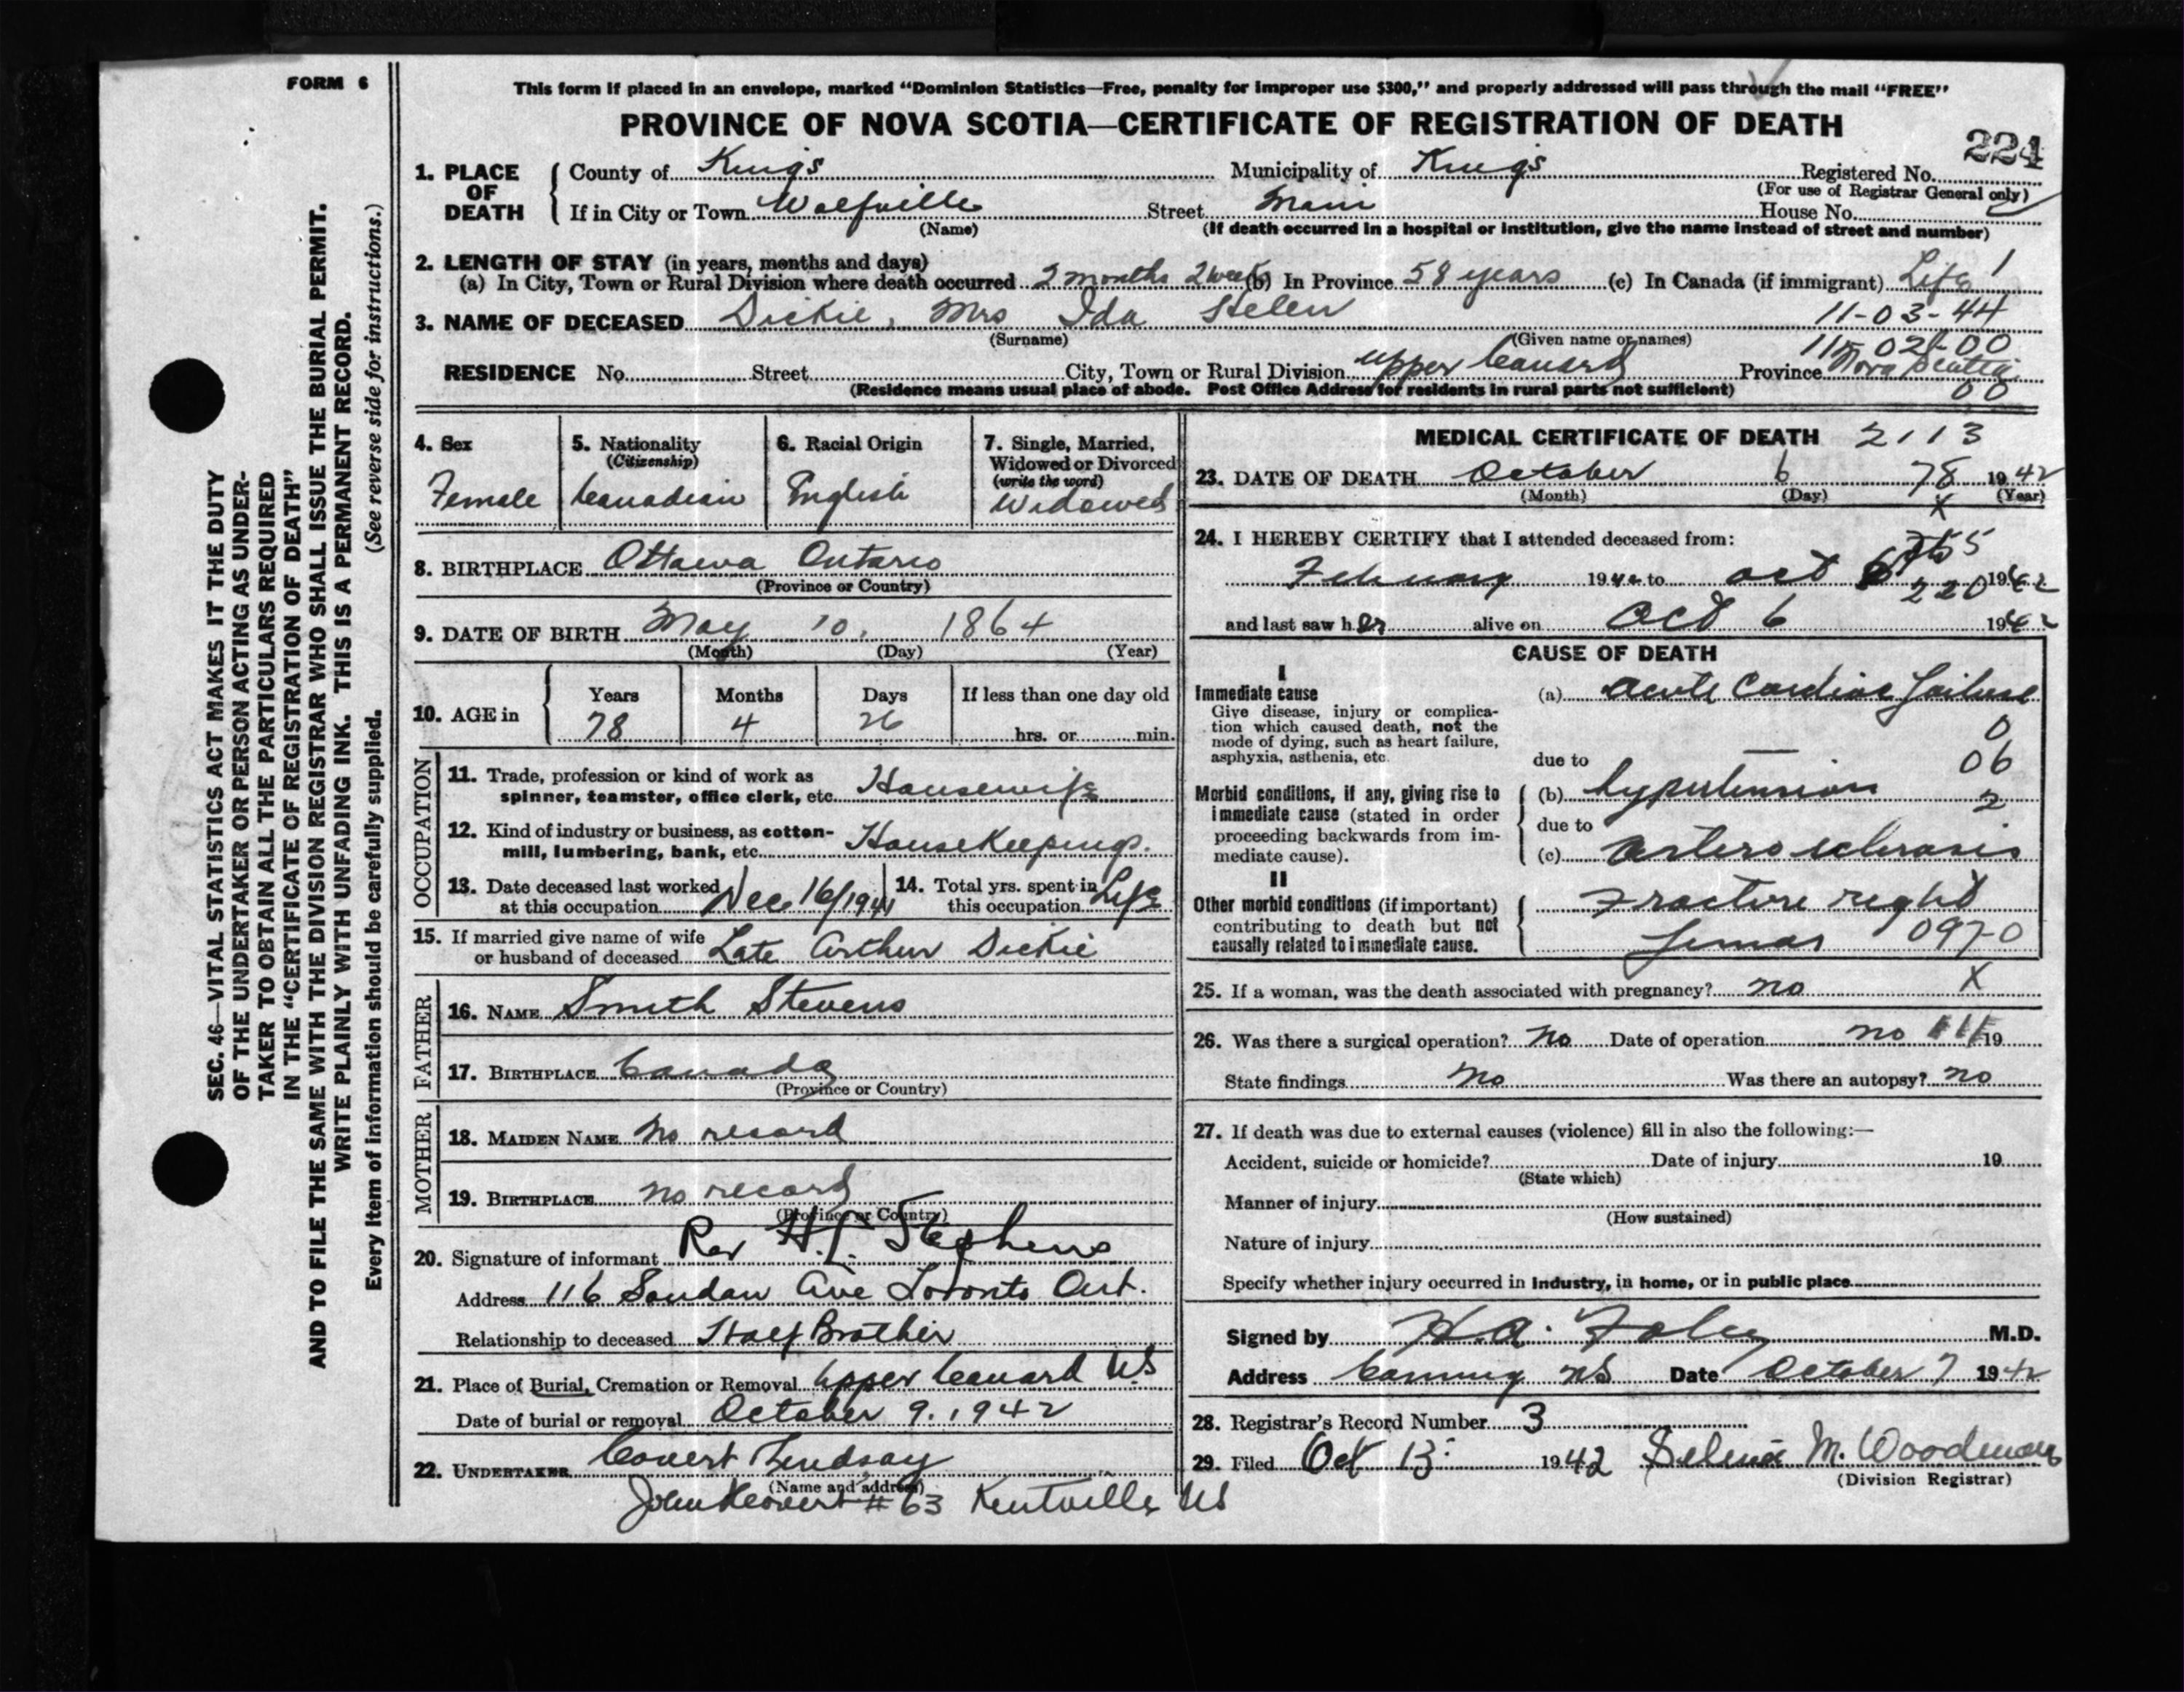 FORM 6
This form if placed in an envelope, marked "Dominion Statistics—Free, penalty for improper use $300," and properly addressed will pass through the mail "FREE"
PROVINCE OF NOVA SCOTIA—CERTIFICATE OF REGISTRATION OF DEATH
224
1. PLACE OF DEATH
County of Kings Municipality of Kings Registered No.
(For use of Registrar General only)
If in City or Town Wolfville Street Main House No.
(Name) (If death occurred in a hospital or institution, give the name instead of street and number)
2. LENGTH OF STAY (in years, months and days)
(a) In City, Town or Rural Division where death occurred 2 months 2 weeks (b) In Province 58 years (c) In Canada (if immigrant) Life 1
3. NAME OF DECEASED Dickie, Mrs Ida Helen 11-03-44
(Surname) (Given name or names)
RESIDENCE No. Street City, Town or Rural Division Upper Canard Province Nova Scotia
(Residence means usual place of abode. Post Office Address for residents in rural parts not sufficient) 00
4. Sex
Female
5. Nationality
(Citizenship)
Canadian
6. Racial Origin
English
7. Single, Married,
Widowed or Divorced
(write the word)
Widowed
8. BIRTHPLACE Ottawa Ontario
(Province or Country)
9. DATE OF BIRTH May 10, 1864
(Month) (Day) (Year)
10. AGE in
Years Months Days If less than one day old
78 4 26 hrs. or min.
OCCUPATION
11. Trade, profession or kind of work as
spinner, teamster, office clerk, etc. Housewife
12. Kind of industry or business, as cotton-
mill, lumbering, bank, etc. Housekeeping.
13. Date deceased last worked
at this occupation Dec 16/1941
14. Total yrs. spent in
this occupation Life
15. If married give name of wife
or husband of deceased Late Arthur Dickie
FATHER
16. NAME Smith Stevens
17. BIRTHPLACE Canada
(Province or Country)
MOTHER
18. MAIDEN NAME No record
19. BIRTHPLACE no record
(Province or Country)
20. Signature of informant Rev H. Stephens
Address 116 Soudan Ave Toronto Ont.
Relationship to deceased Half Brother
21. Place of Burial, Cremation or Removal Upper Canard NS
Date of burial or removal October 9, 1942
22. UNDERTAKER Covert Lindsay
(Name and address)
# 63 Kentville NS
MEDICAL CERTIFICATE OF DEATH 2113
23. DATE OF DEATH October 6 78 1942
(Month) (Day) (Year)
X
24. I HEREBY CERTIFY that I attended deceased from:
February 1942 to Oct 6 220 1942
and last saw her alive on Oct 6 1942
CAUSE OF DEATH
I
Immediate cause
Give disease, injury or complica-
tion which caused death, not the
mode of dying, such as heart failure,
asphyxia, asthenia, etc.
(a) acute Cardiac failure
0
due to 06
Morbid conditions, if any, giving rise to
immediate cause (stated in order
proceeding backwards from im-
mediate cause).
(b) hypertension 2
due to
(c) arterosclerosis
II
Other morbid conditions (if important)
contributing to death but not
causally related to immediate cause.
Fracture right
femur 097-0
25. If a woman, was the death associated with pregnancy? no X
26. Was there a surgical operation? no Date of operation no 19
State findings no Was there an autopsy? no
27. If death was due to external causes (violence) fill in also the following:—
Accident, suicide or homicide? Date of injury 19
(State which)
Manner of injury
(How sustained)
Nature of injury
Specify whether injury occurred in industry, in home, or in public place
Signed by H.A. Foley M.D.
Address Canning NS Date October 7 1942
28. Registrar's Record Number 3
29. Filed Oct 13 1942 Selena M. Woodman
(Division Registrar)
SEC. 46—VITAL STATISTICS ACT MAKES IT THE DUTY
OF THE UNDERTAKER OR PERSON ACTING AS UNDER-
TAKER TO OBTAIN ALL THE PARTICULARS REQUIRED
IN THE "CERTIFICATE OF REGISTRATION OF DEATH"
AND TO FILE THE SAME WITH THE DIVISION REGISTRAR WHO SHALL ISSUE THE BURIAL PERMIT.
WRITE PLAINLY WITH UNFADING INK. THIS IS A PERMANENT RECORD.
Every item of information should be carefully supplied. (See reverse side for instructions.)